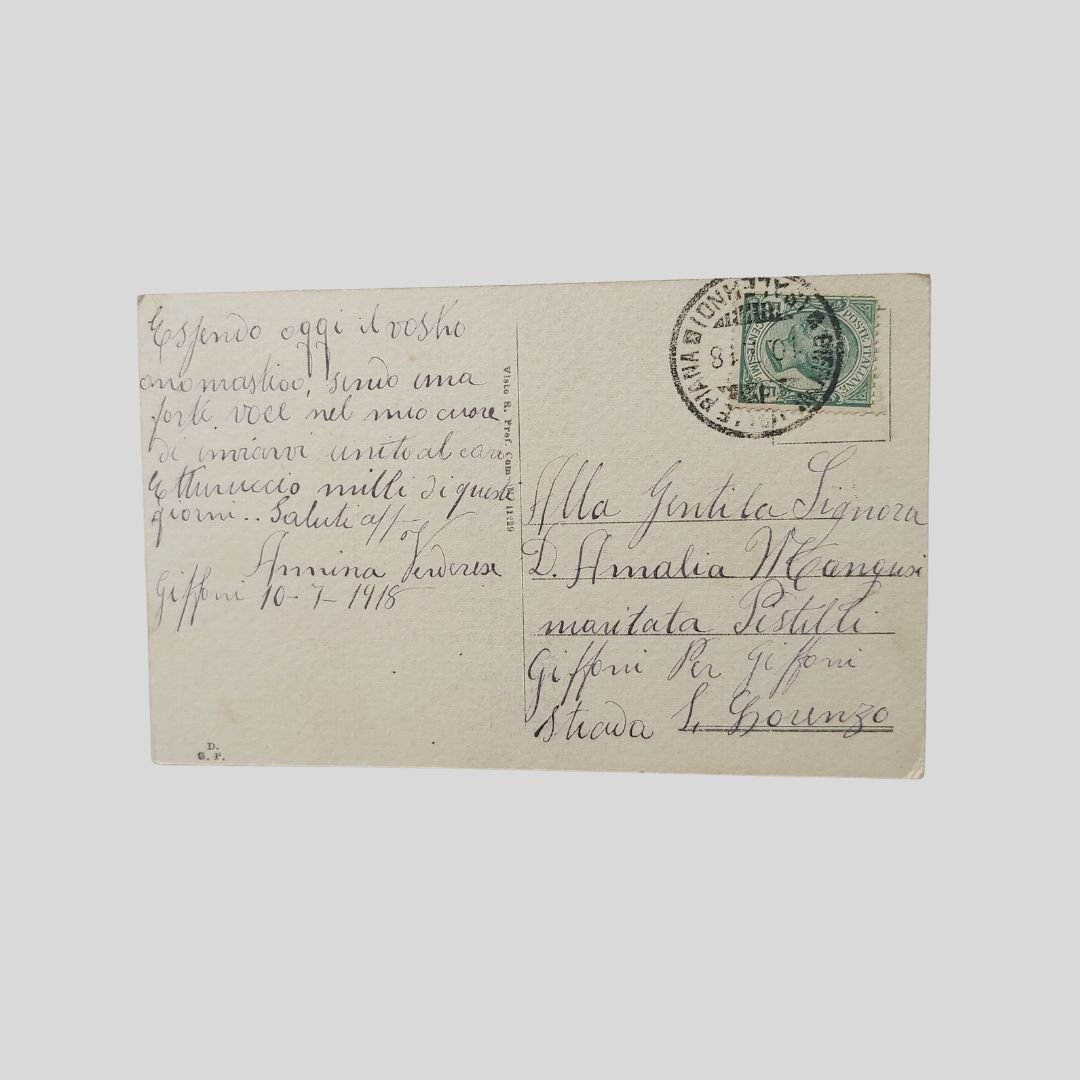 Essendo oggi il vostro
onomastico, sendo una
forte voce nel mio cuore
di inviarvi unito al caro
Ettoruccio milli di queste
giorni.. Saluti aff.
Annina Verderese
Giffoni 10-7-1918
D.
G. P.
Visto R. Pref. Com
POSTE ITALIANE
CENTESIMI
VALLE PIANA (SALERNO)
10 18
Alla Gentila Signora
D. Amalia Mangusi
maritata Pistilli
Giffoni Per Giffoni
Strada S. Lorenzo